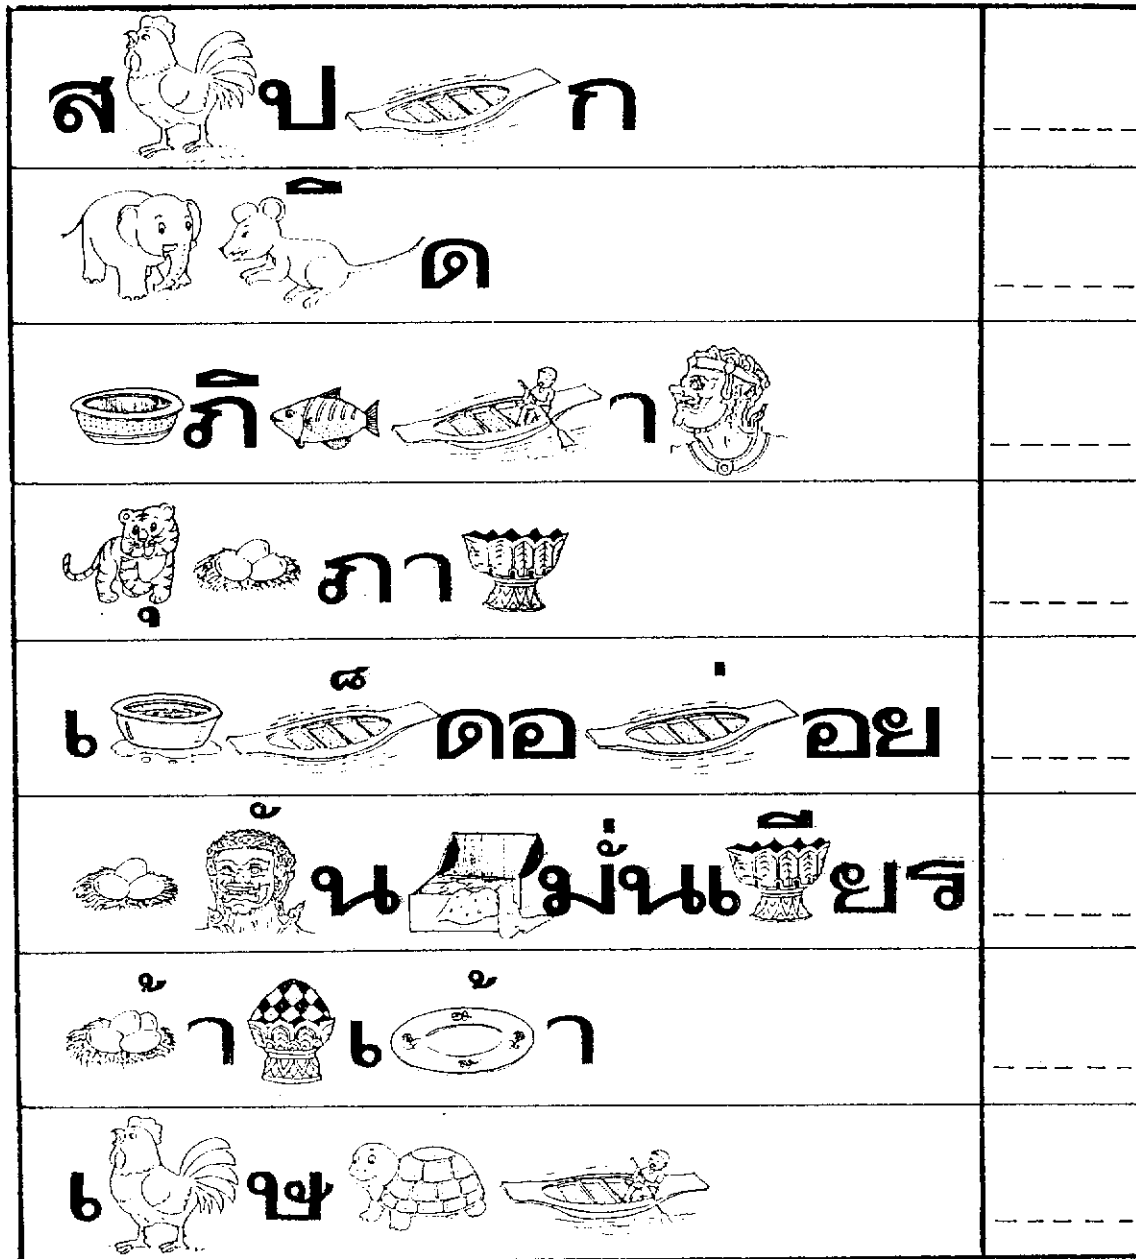 ส ป ก
ิ ด
ภิ า
ุ ภา
เ ็ ดอ ่ อย
ั น มั่นเ ี ยร
้ า เ ้ า
เ ษ